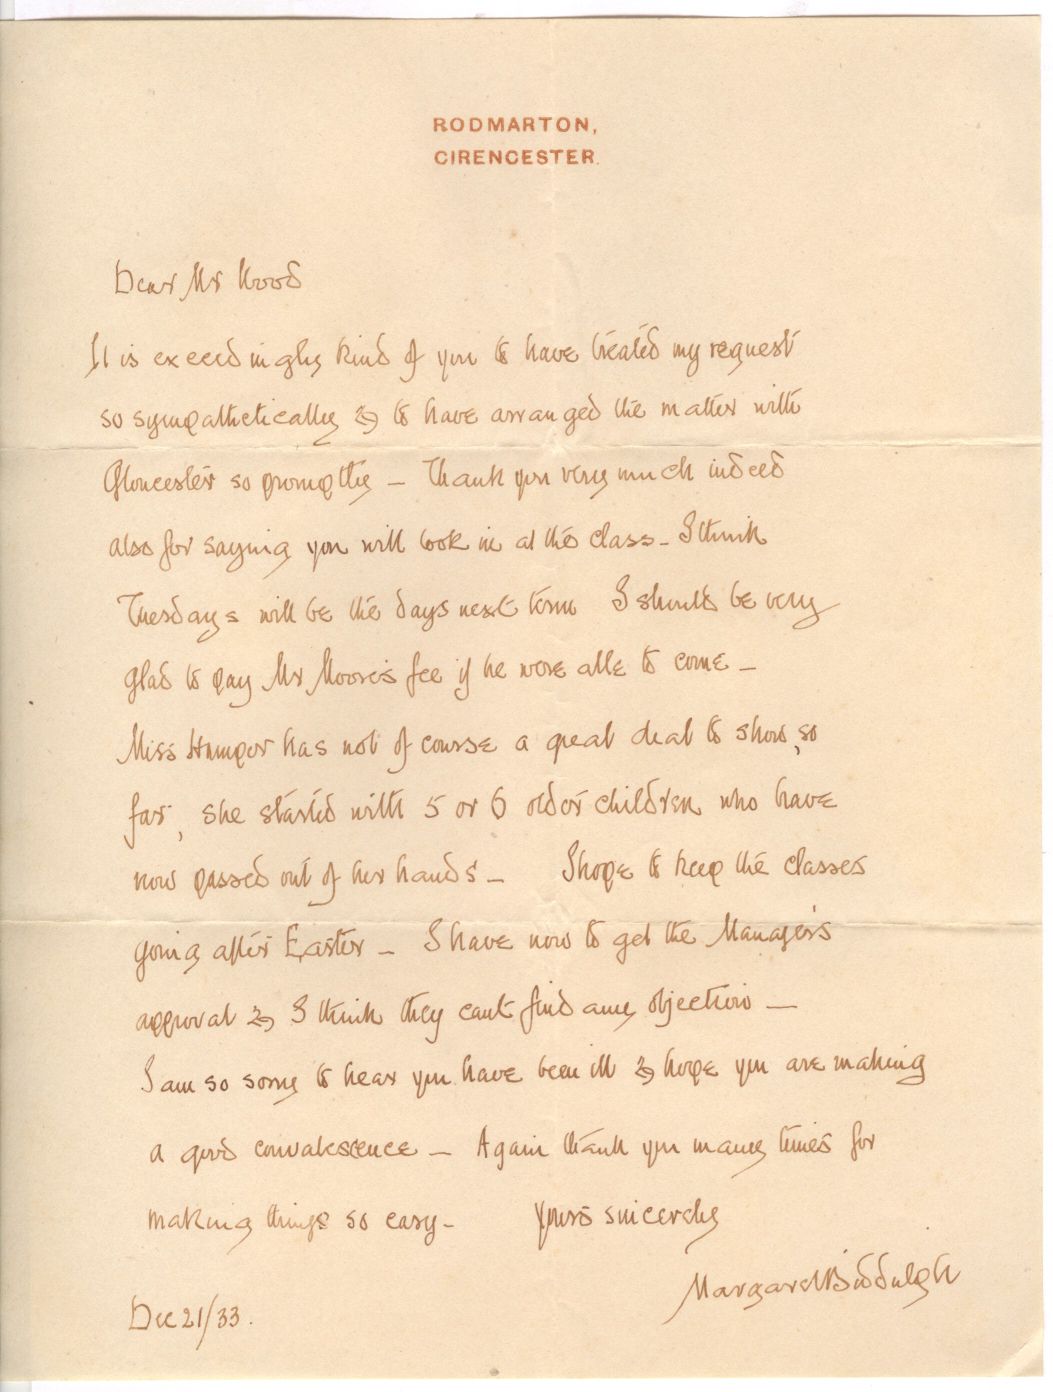 RODMARTON,
CIRENCESTER.
Dear Mr Wood
It is exceedingly kind of you to have treated my request
so sympathetically & to have arranged the matter with
Gloucester so promptly – Thank you very much indeed
also for saying you will look in at the class – I think
Tuesdays will be the days next term I should be very
glad to pay Mr Moore's fee if he were able to come –
Miss has not of course a great deal to show, so
far, she started with 5 or 6 older children who have
now passed out of her hands – I hope to keep the classes
going after Easter – I have now to get the Manager's
approval & I think they cant find any objection –
I am so sorry to hear you have been ill & hope you are making
a good convalescence – Again thank you many times for
making things so easy – Yours sincerely
Margaret Biddulph
Dec 21/33.